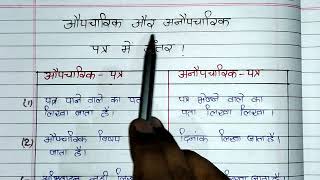 औपचारिक और अनौपचारिक
पत्र में अंतर ।
औपचारिक - पत्र
अनौपचारिक - पत्र
(1) पत्र पाने वाले का पता
लिखा जाता है।
पत्र भेजने वाले का
पता लिखा जाता है।
(2) औपचारिक विषय
जाता है।
दिनांक लिखा जाता है।